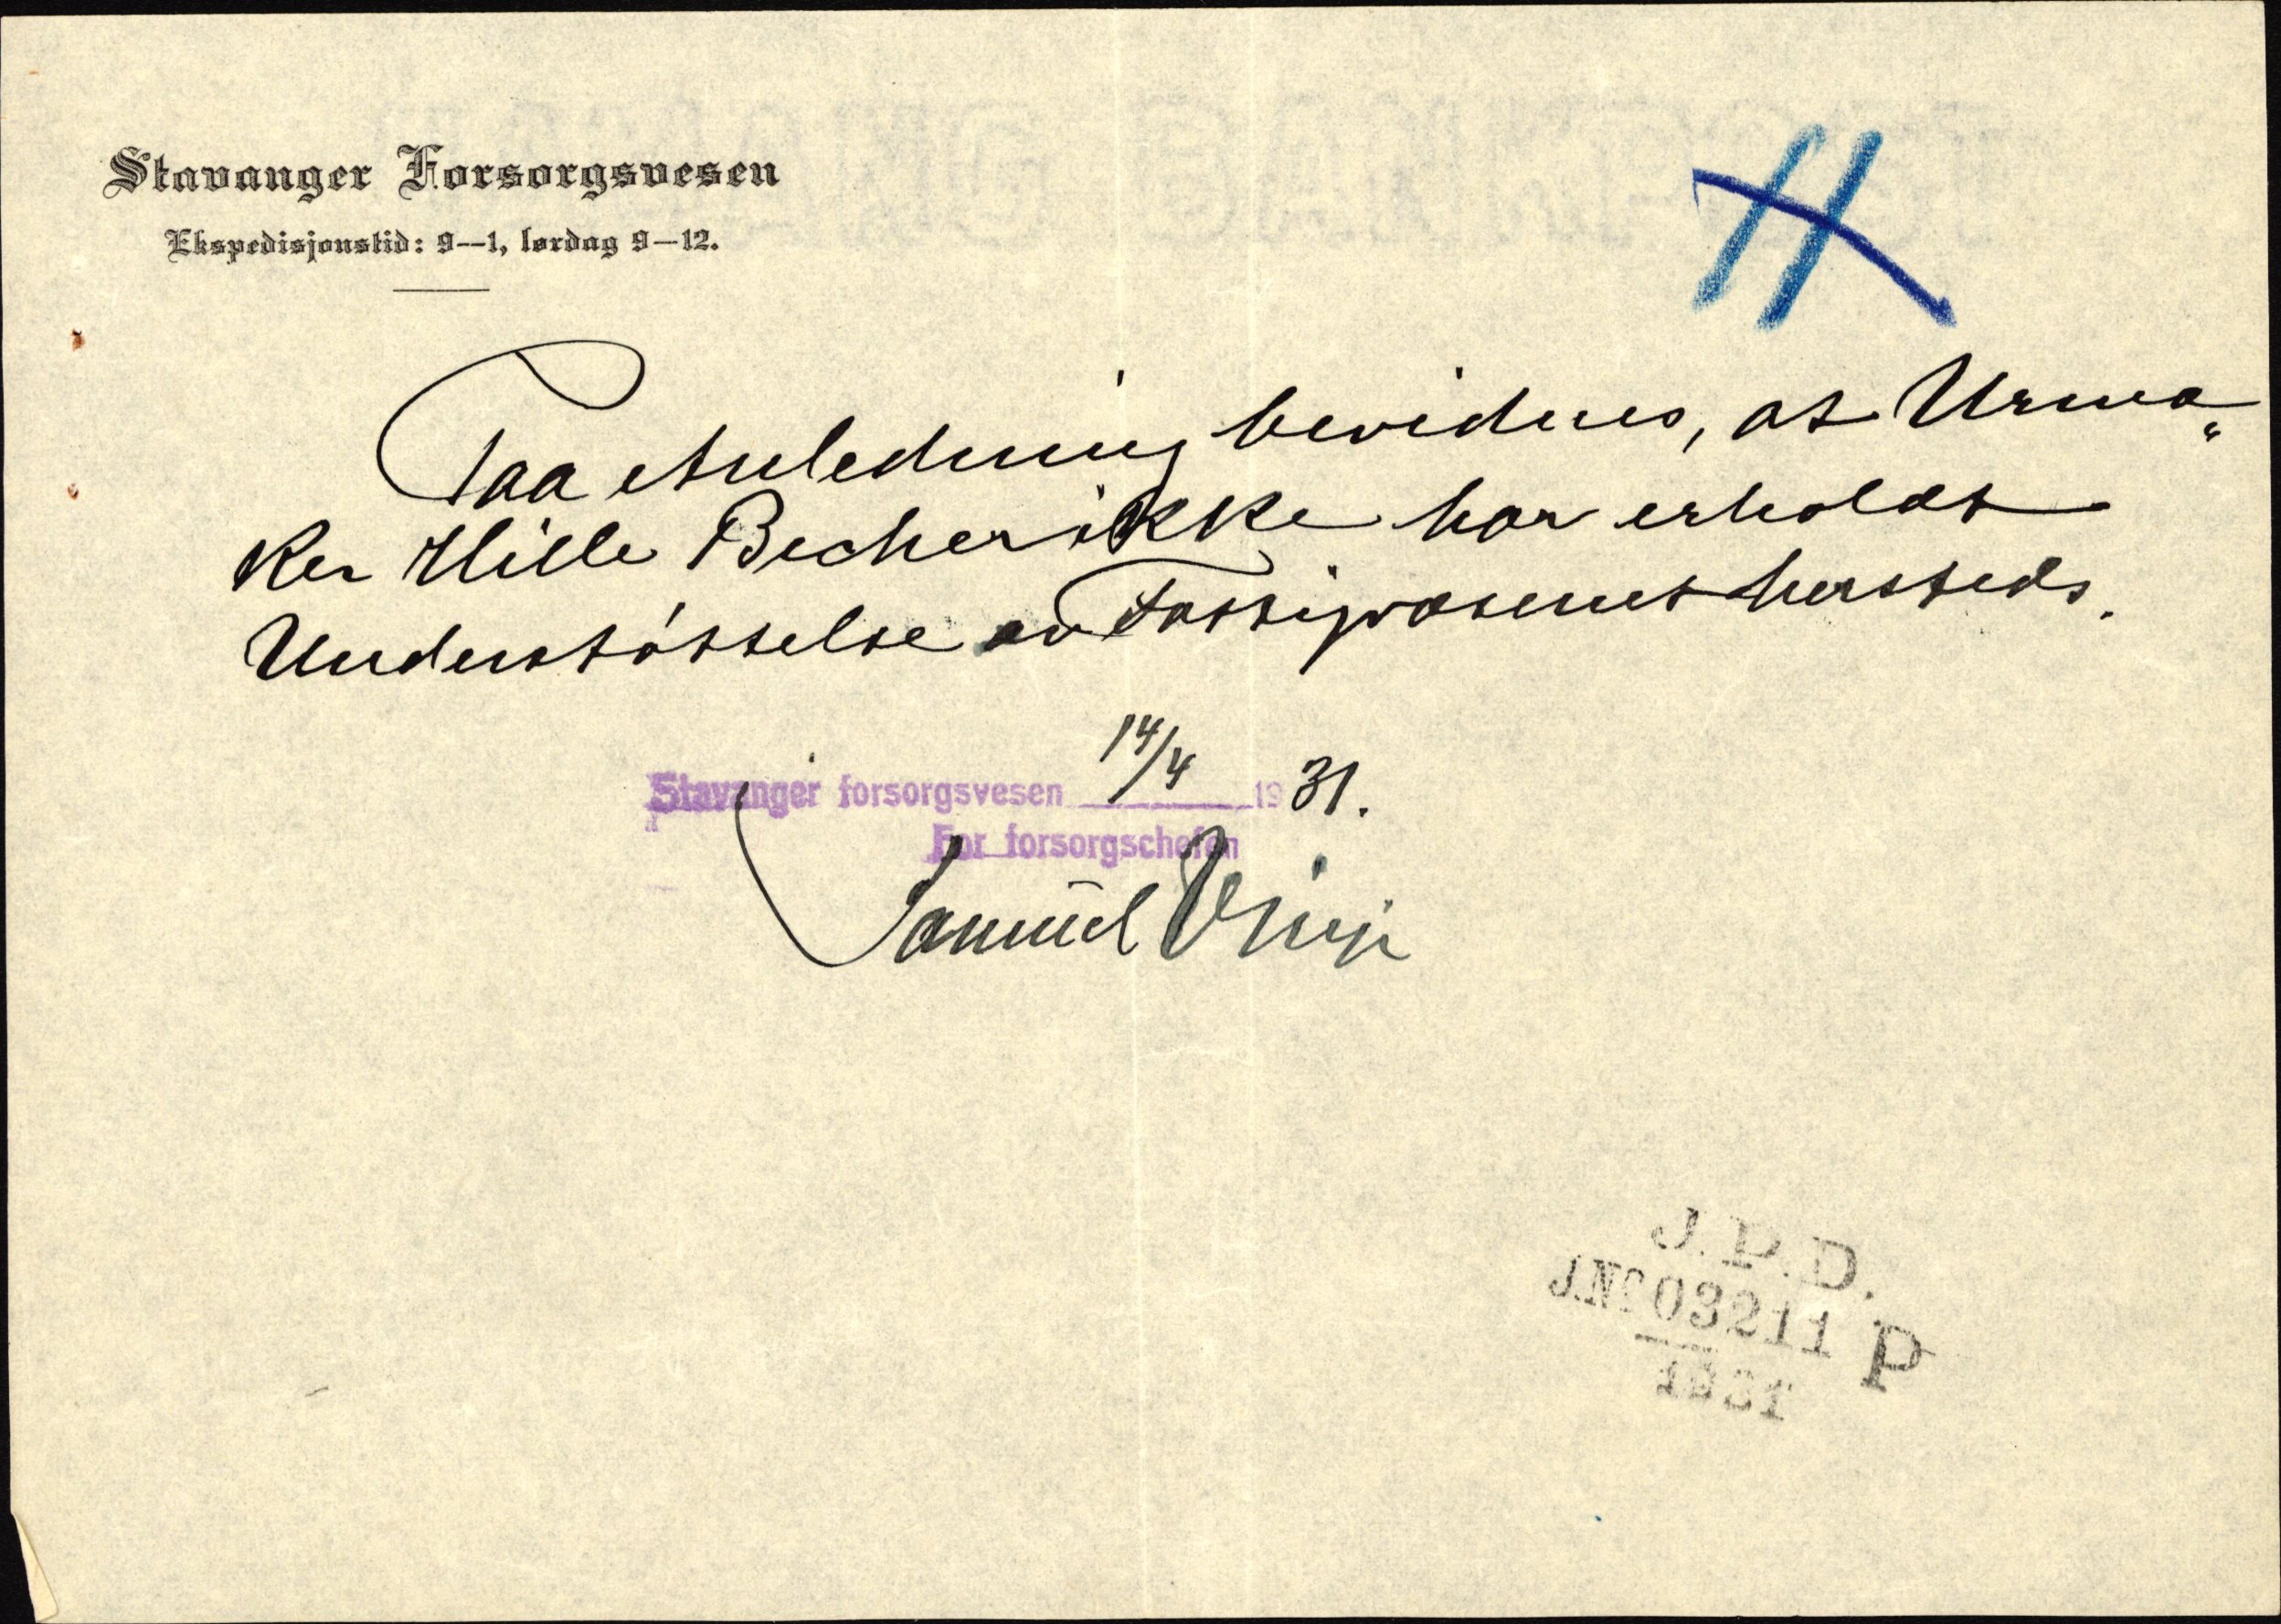 Stavanger Forsorgsvesen
Ekspedisjonstid: 9—1, lørdag 9—12.
Paa Anledning bevidnes, at Urma„
ker Hille Becher ikke har erholdt
Understøttelse av Fattigvæsenet hersteds.
Stavanger forsorgsvesen 14/4 1931.
For forsorgschefen
Samuel
J. P. D.
J.No 03211 P
1931